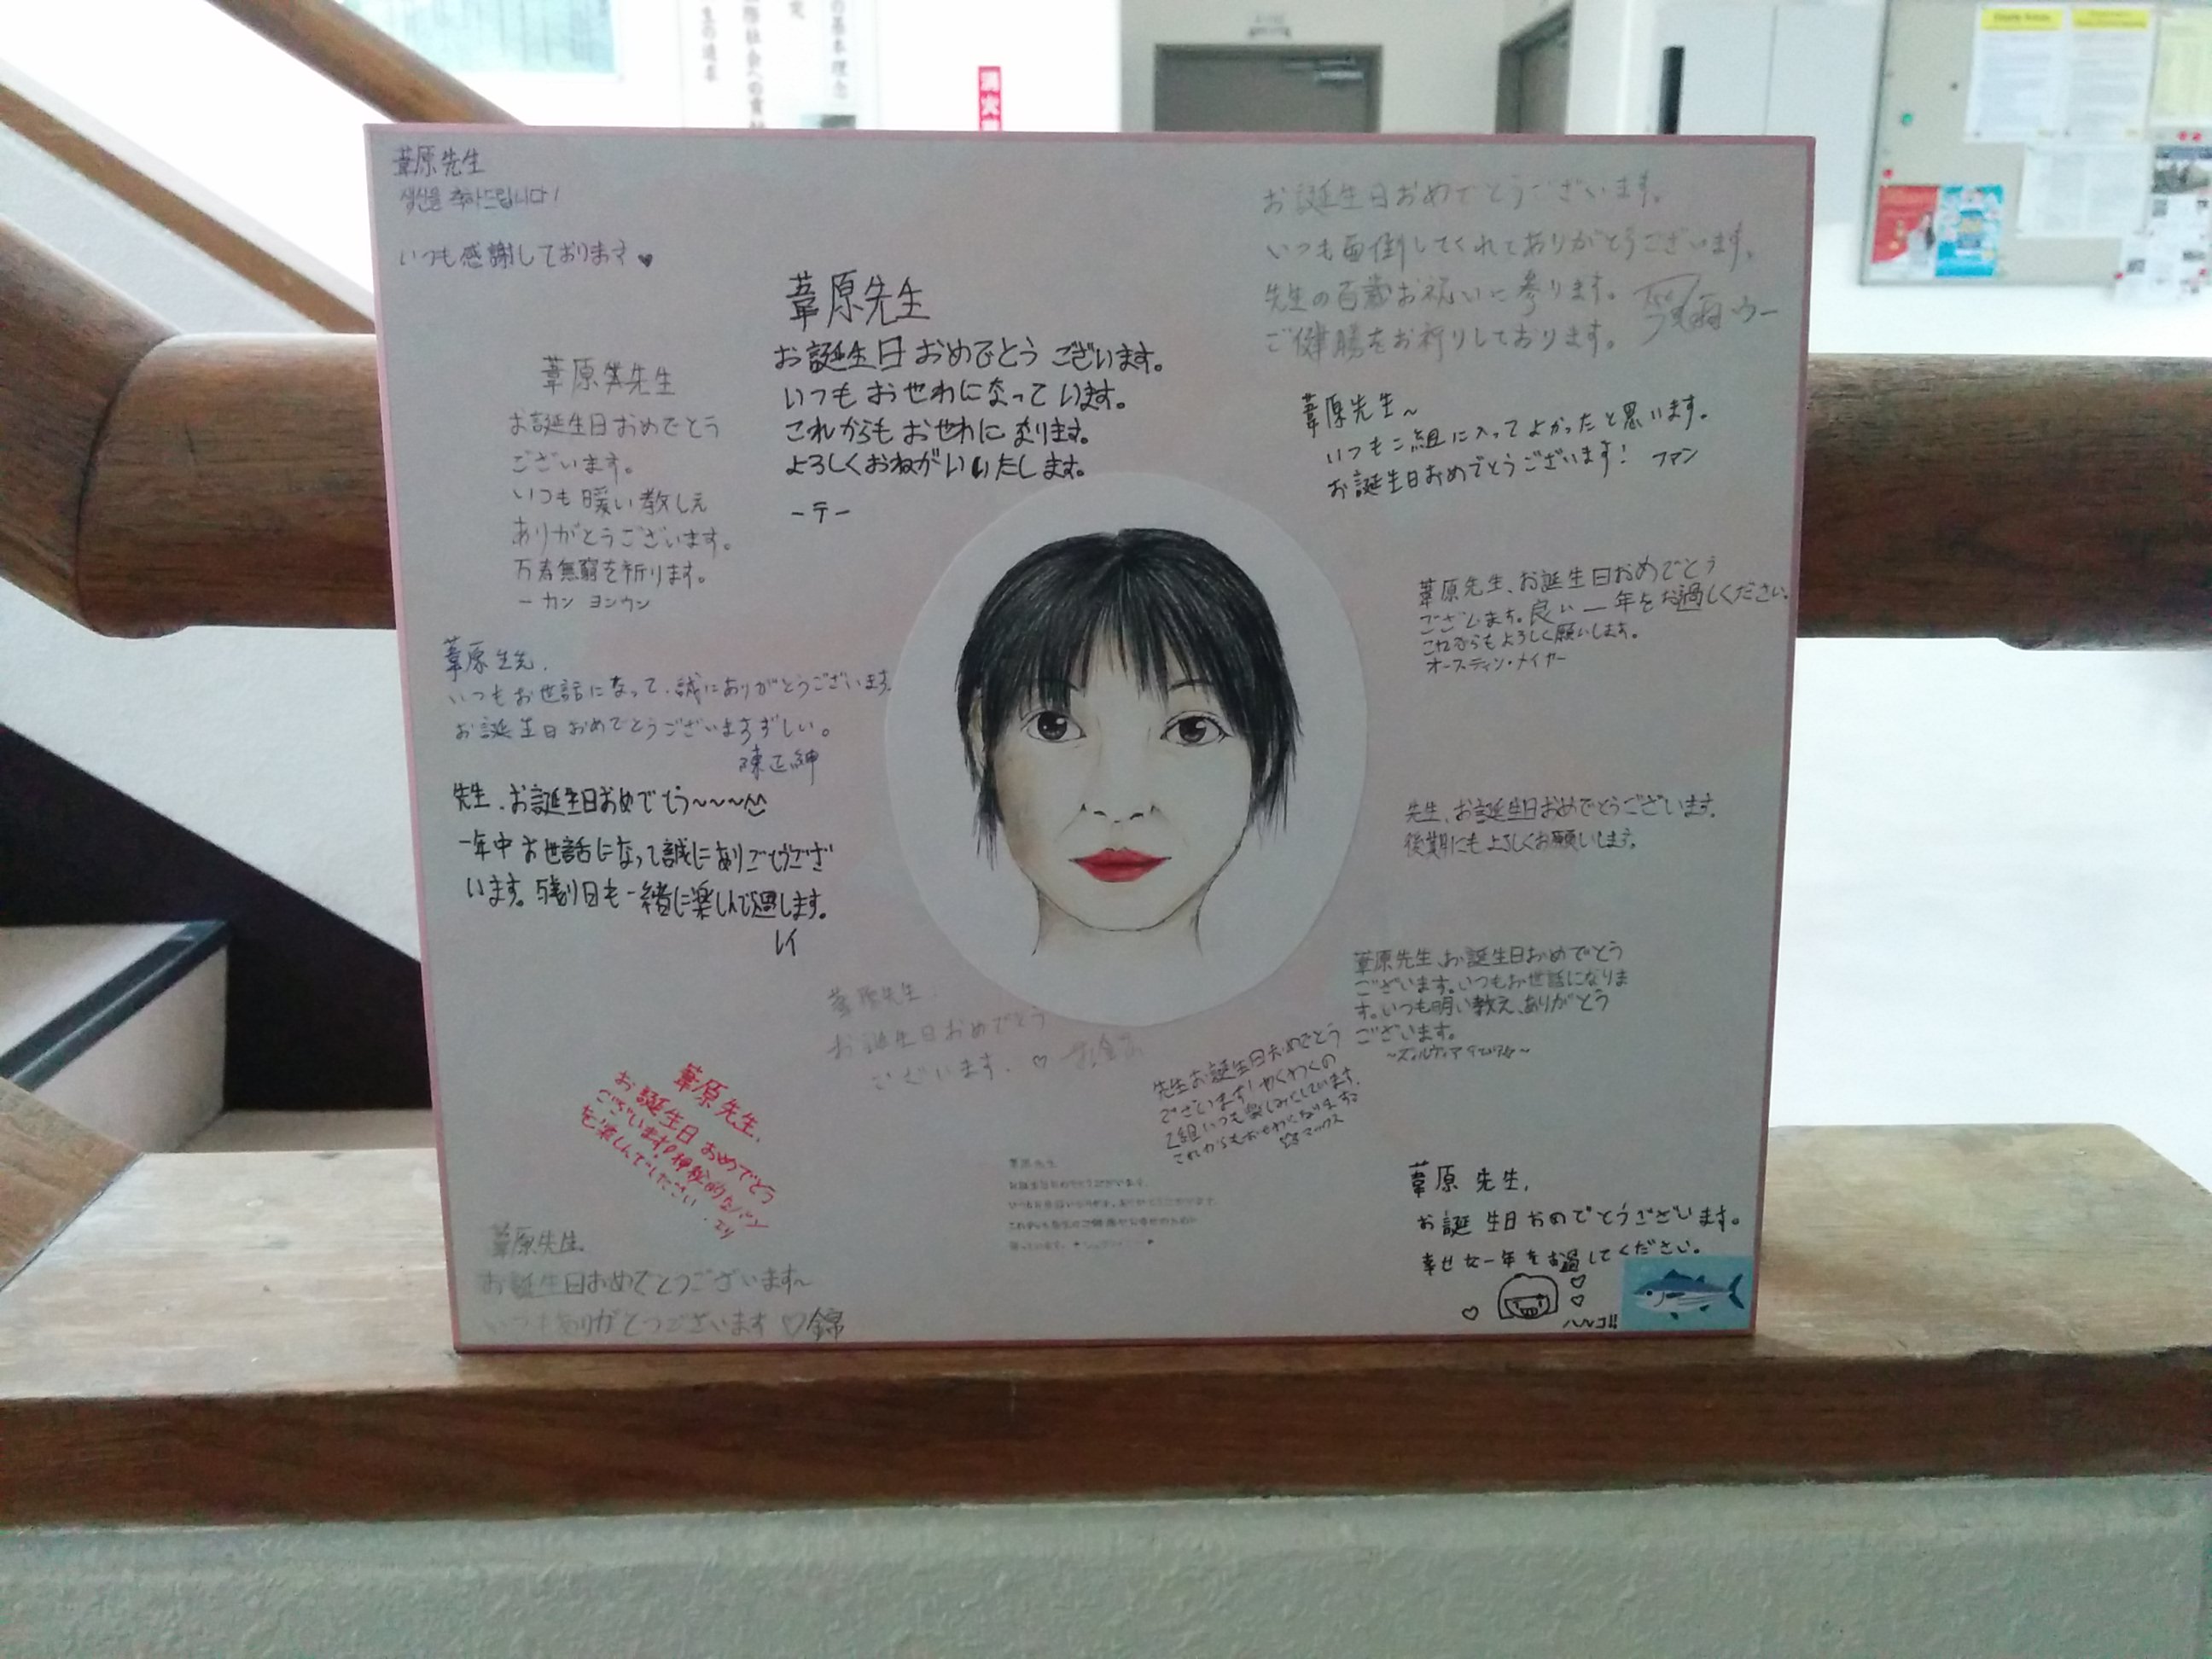 葦原先生
생신을 축하드립니다!
いつも感謝しております
葦原先生
お誕生日おめでとうございます。
いつもおせわになっています。
これからもおせわに
よろしくおねがいいたします。
ーテー
お誕生日おめでとうございます。
いつも面倒してくれてありがとうございます。
先生の百歳お祝いに参ります。
ご健勝をお祈りしております。
ウー
葦原先生
お誕生日おめでとう
ございます。
いつも暖い教しえ
ありがとうございます。
万寿無窮を祈ります。
ー カン ヨンウン
葦原先生~
いつも二組に入ってよかったと思います。
お誕生日おめでとうございます! ファン
葦原先生、お誕生日おめでとう
ございます。良い一年をお過しください。
これからもよろしく願いします。
オースティン・メイヤー
葦原生先、
いつもお世話になって、誠にありがとうございます
お誕生日おめでとうございます
陳正紳
先生、お誕生日おめでとう~~~
一年中お世話になって誠にありごとうござ
います。残り日も一緒に楽しんで過します。
レイ
先生、お誕生日おめでとうございます。
後期にもよろしくお願いします。
葦原先生、お誕生日おめでとう
ございます。いつもお世話になりま
す。いつも明い教え、ありがとう
ございます。
葦原先生、
お誕生日おめでとう
ございます。♡
先生お誕生日おめでとう
ございます!わくわくの
2組いつも楽しみにしています。
これからもおせわになります。
マックス
葦原先生、
お誕生日おめでとう
ございます!神秘的なパン
を楽しんでください
・エリ
葦原先生
お誕生日おめでとうございます。
葦原先生、
お誕生日おめでとうございます~
いつもありがとうございます ♡錦
葦原 先生、
お誕生日おめでとうございます。
幸せな一年をお過してください。
ハルコ!!
消火